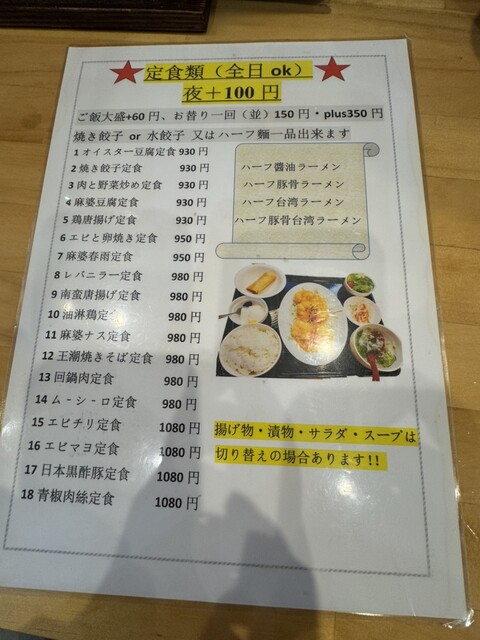 ★定食類（全日ok）★
夜＋100 円
ご飯大盛+60 円、お替り一回（並）150 円・plus350 円
焼き餃子 or 水餃子 又はハーフ麺一品出来ます
1 オイスター豆腐定食 930 円
2 焼き餃子定食 930 円
3 肉と野菜炒め定食 930 円
4 麻婆豆腐定食 930 円
5 鶏唐揚げ定食 930 円
6 エビと卵焼き定食 950 円
7 麻婆春雨定食 950 円
8 レバニラー定食 980 円
9 南蛮唐揚げ定食 980 円
10 油淋鶏定食 980 円
11 麻婆ナス定食 980 円
12 王潮焼きそば定食 980 円
13 回鍋肉定食 980 円
14 ム-シ-ロ定食 980 円
15 エビチリ定食 1080 円
16 エビマヨ定食 1080 円
17 日本黒酢豚定食 1080 円
18 青椒肉絲定食 1080 円
ハーフ醬油ラーメン
ハーフ豚骨ラーメン
ハーフ台湾ラーメン
ハーフ豚骨台湾ラーメン
揚げ物・漬物・サラダ・スープは
切り替えの場合あります!!